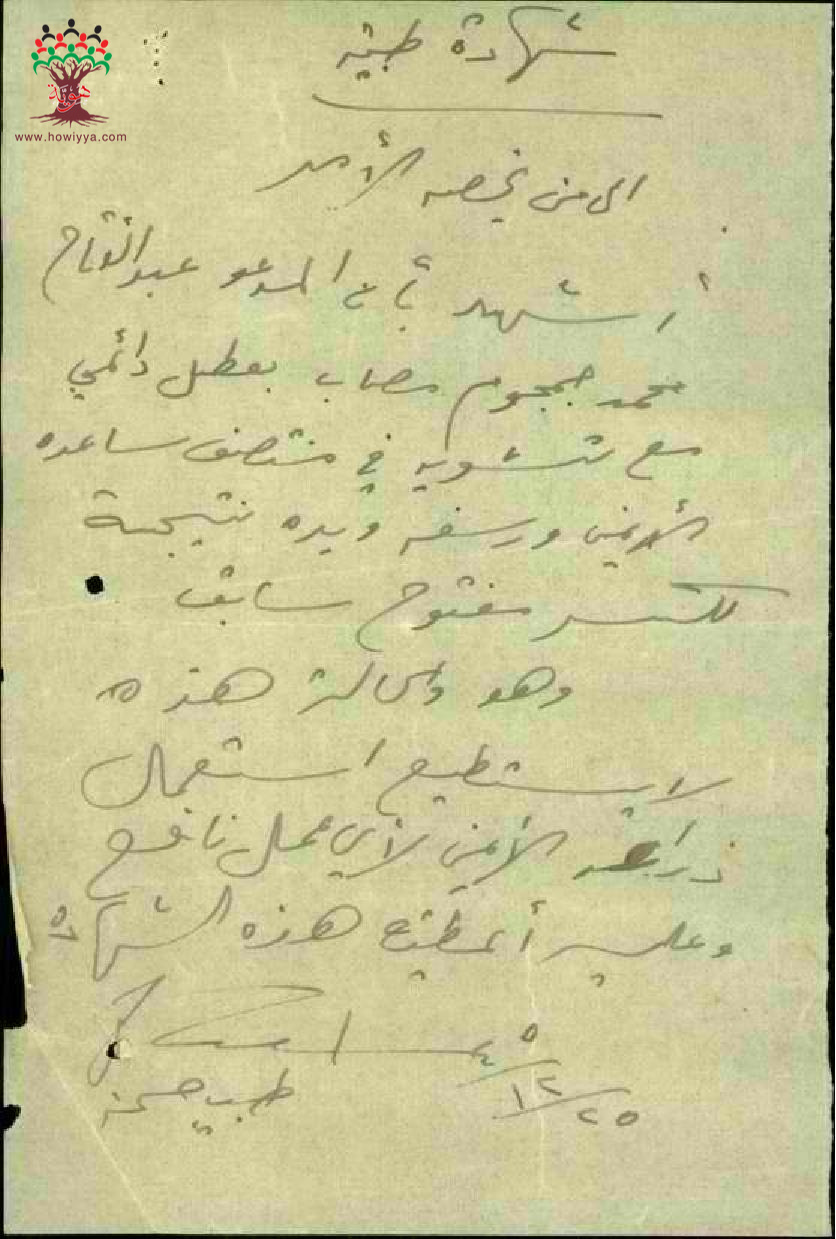 هوية
www.howiyya.com
شهادة طبية
الى من يخصه الأمر
أشهد بأن المدعو عبد الفتاح
محمد جمجوم مصاب بعطل دائمي
مع تشويه في منتصف ساعده
الأيمن ورسغه ويده نتيجة
لكسر مفتوح سابق
وهو والحالة هذه
لا يستطيع استعمال
ذراعه الأيمن لأي عمل نافع
وعليه أعطيته هذه الشهادة
طبيب صحة
٢٥/١٢/